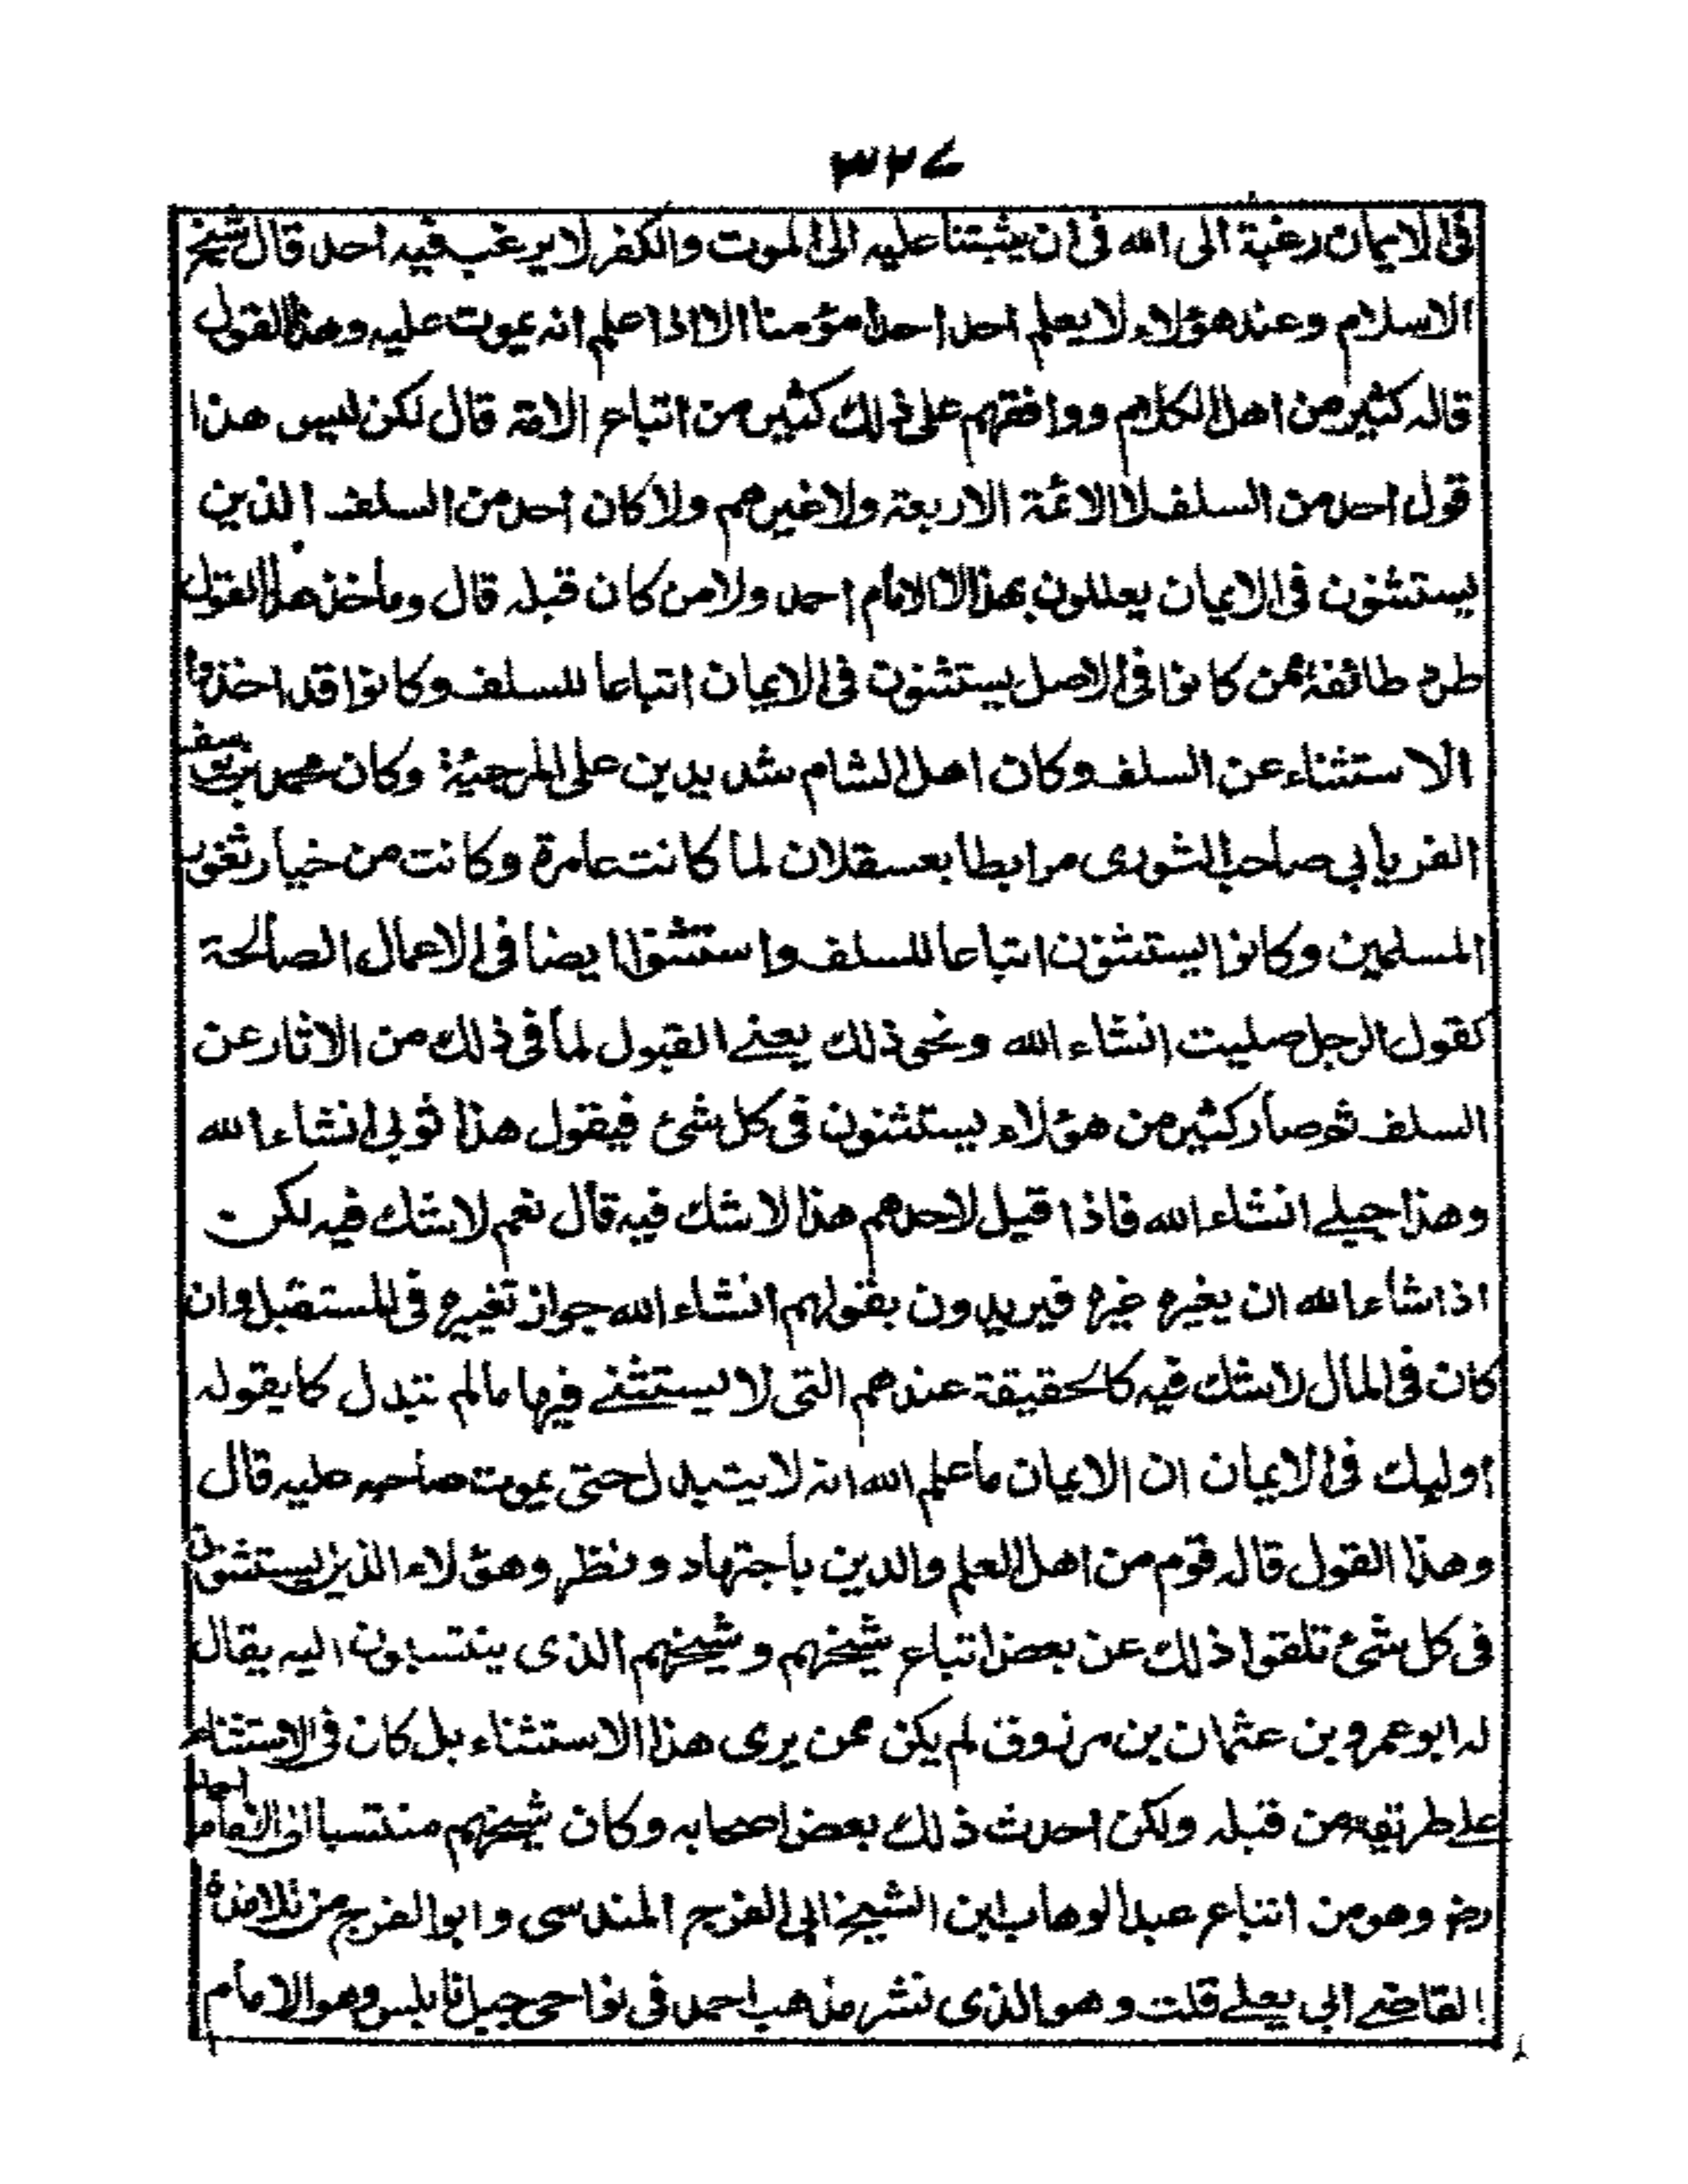 ٣٢٧
فى الايمان رغبة الى الله فى ان يثبتنا عليه الى الموت والكفر لا يرغب فيه احد قال شيخ
الاسلام وعند هؤلاء لا يعلم احد احدا مؤمنا الا اذا علم انه يموت عليه وهذا القول
قاله كثير من اهل الكلام ووافقهم على ذلك كثير من اتباع الائمة قال لكن ليس هذا
قول احد من السلف لا الائمة الاربعة ولا غيرهم ولا كان احد من السلف الذين
يستثنون فى الايمان يعللون بهذا لا الامام احمد ولا من كان قبله قال وماخذ هذا القول
طرد طائفة ممن كانوا فى الاصل يستثنون فى الايمان اتباعا للسلف وكانوا قد اخذوا
الاستثناء عن السلف وكان اهل الشام شديدين على المرجئة وكان محمد بن يوسف
الفريابي صاحب الثورى مرابطا بعسقلان لما كانت عامرة وكانت من خيار ثغور
المسلمين وكانوا يستثنون اتباعا للسلف واستثنوا ايضا فى الاعمال الصالحة
كقول الرجل صليت انشاء الله ونحو ذلك يعنے القبول لما فى ذلك من الاثار عن
السلف ثم صار كثير من هؤلاء يستثنون فى كل شئ فيقول هذا ثوبي انشاء الله
وهذا حبلے انشاء الله فاذا قيل لاحدهم هذا لا شك فيه قال نعم لا شك فيه لكن
اذا شاء الله ان يغيره غيره فيريدون بقولهم انشاء الله جواز تغييره فى المستقبل وان
كان فى المال لا شك فيه كالحقيقة عندهم التى لا يستثنے فيها ما لم تتبدل كما يقوله
اوليك فى الايمان ان الايمان ما علم الله انه لا يتبدل حتى يموت صاحبه عليه قال
وهذا القول قاله قوم من اهل العلم والدين باجتهاد ونظر وهؤلاء الذين يستثنون
فى كل شئ تلقوا ذلك عن بعض اتباع شيخهم وشيخهم الذى ينتسبون اليه يقال
له ابو عمرو بن عثمان بن مرزوق لم يكن ممن يرى هذا الاستثناء بل كان فى الاستثناء
علے طريقة من قبله ولكن احدث ذلك بعض اصحابه وكان شيخهم منتسبا الى الامام احمد
رضه وهو من اتباع عبد الوهاب ابن الشيخ ابي الفرج المقدسى وابو الفرج من تلامذة
القاضے ابي يعلے قلت وهو الذى نشر مذهب احمد فى نواحى جبل نابلس وهو الامام